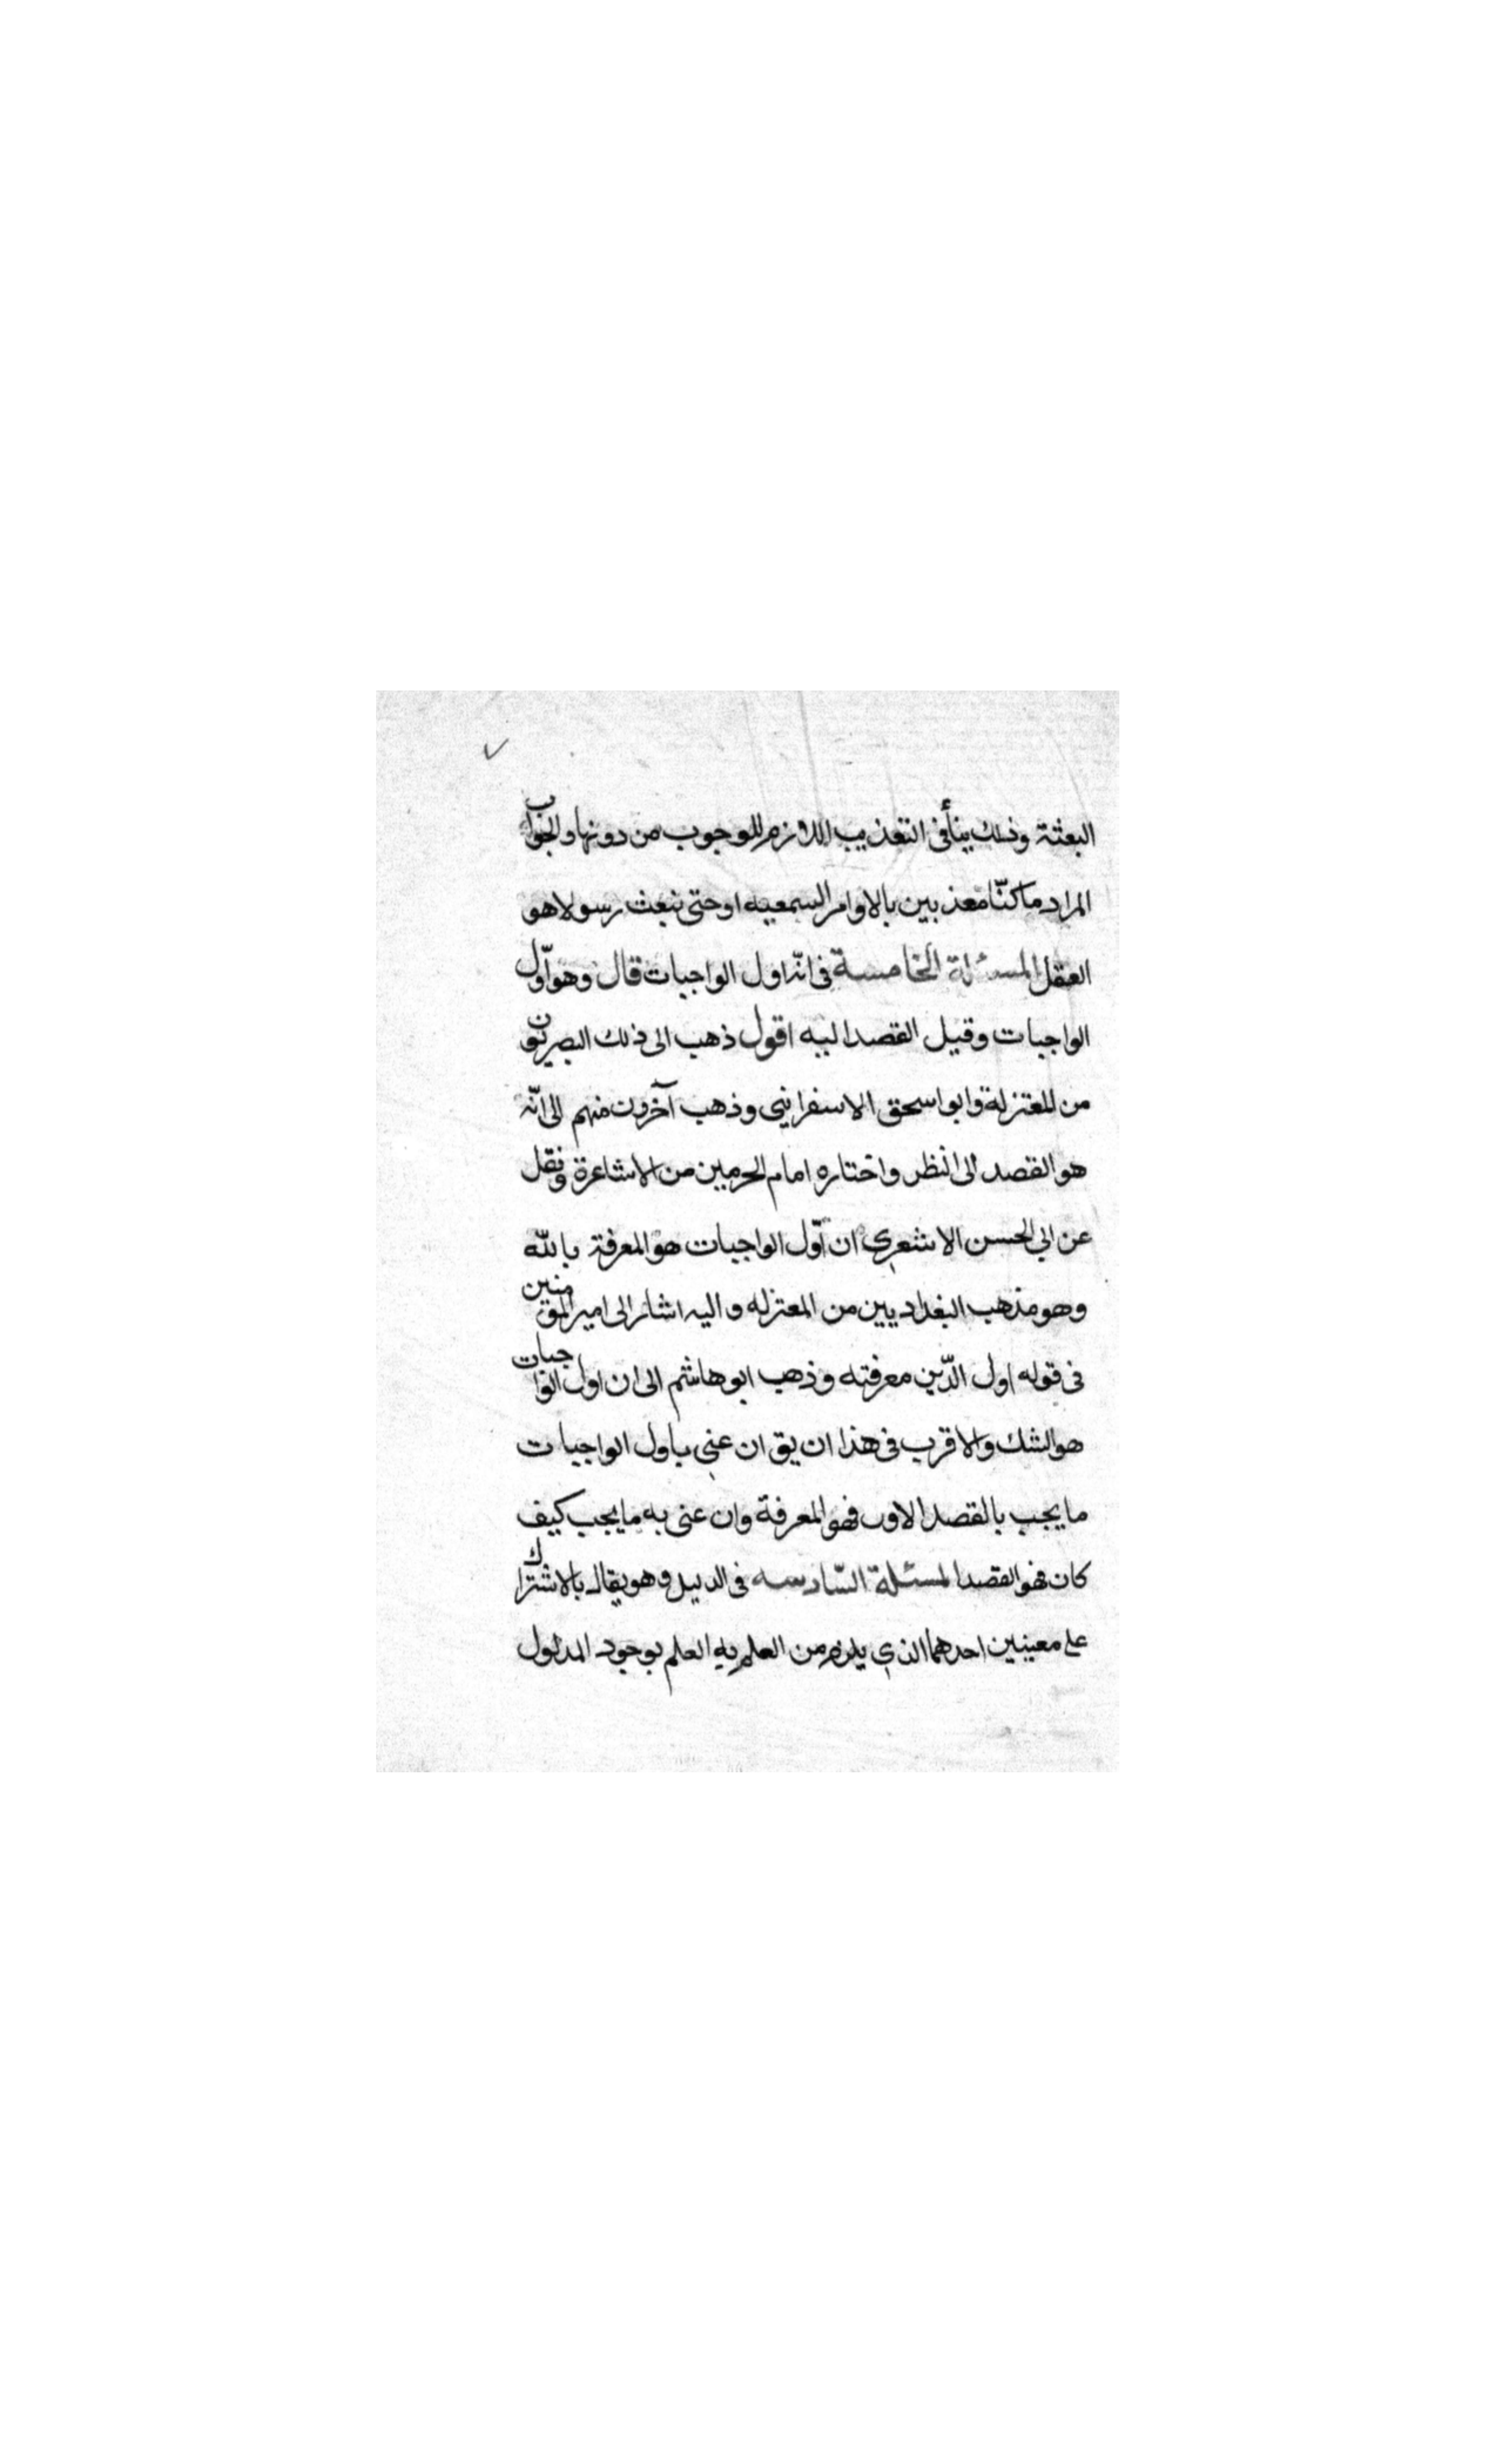 ٧
البعثة وذلك ينأفى التعذيب اللازم للوجوب من دونها والجواب
المراد ما كنّا معذبين بالاوامر السمعيه او حتى نبعث رسولا هو
العقل المسئلة الخامسة فى انّه اول الواجبات قال وهو اوّل
الواجبات وقيل القصد اليه اقول ذهب الى ذلك البصريون
من المعتزلة وابو اسحق الاسفراينى وذهب آخرون منهم الى انّه
هو القصد الى النظر واختاره امام الحرمين من الاشاعرة ونقل
عن ابي الحسن الاشعري ان اوّل الواجبات هو المعرفة بالله
وهو مذهب البغداديين من المعتزله واليه اشار الى امير المؤمنين
فى قوله اول الدّين معرفته وذهب ابو هاشم الى ان اول الواجبات
هو الشك والاقرب فى هذا ان يق ان عني باول الواجبات
ما يجب بالقصد الاول فهو المعرفة وان عنى به ما يجب كيف
كان فهو القصد المسئلة السّادسه فى الدليل وهو يقال بالاشتراك
على معنيين احدهما الذي يلزم من العلم به العلم بوجود المدلول